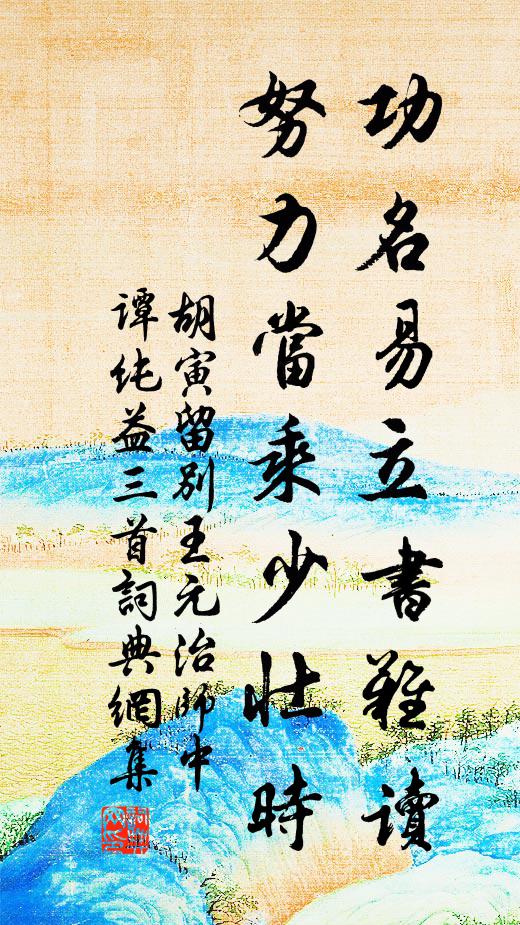 功名易立書難讀
努力當乘少壯時
胡寅留別王元治師中
譚純益三首詞典網集